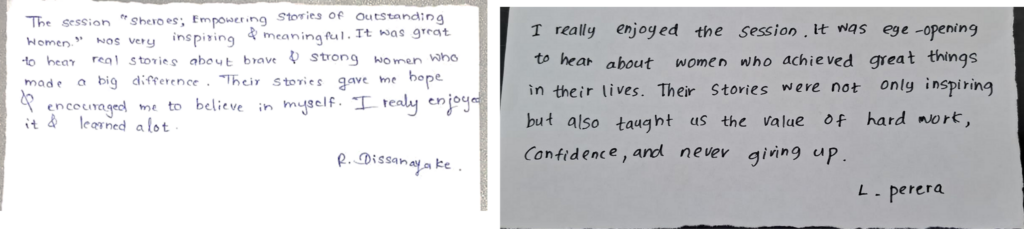 The session "Sheroes; Empowering Stories of Outstanding
Women." was very inspiring & meaningful. It was great
to hear real stories about brave & strong women who
made a big difference. Their stories gave me hope
& encouraged me to believe in myself. I realy enjoyed
it & learned a lot.
R. Dissanayake.
I really enjoyed the session. It was eye-opening
to hear about women who achieved great things
in their lives. Their stories were not only inspiring
but also taught us the value of hard work,
Confidence, and never giving up.
L. perera